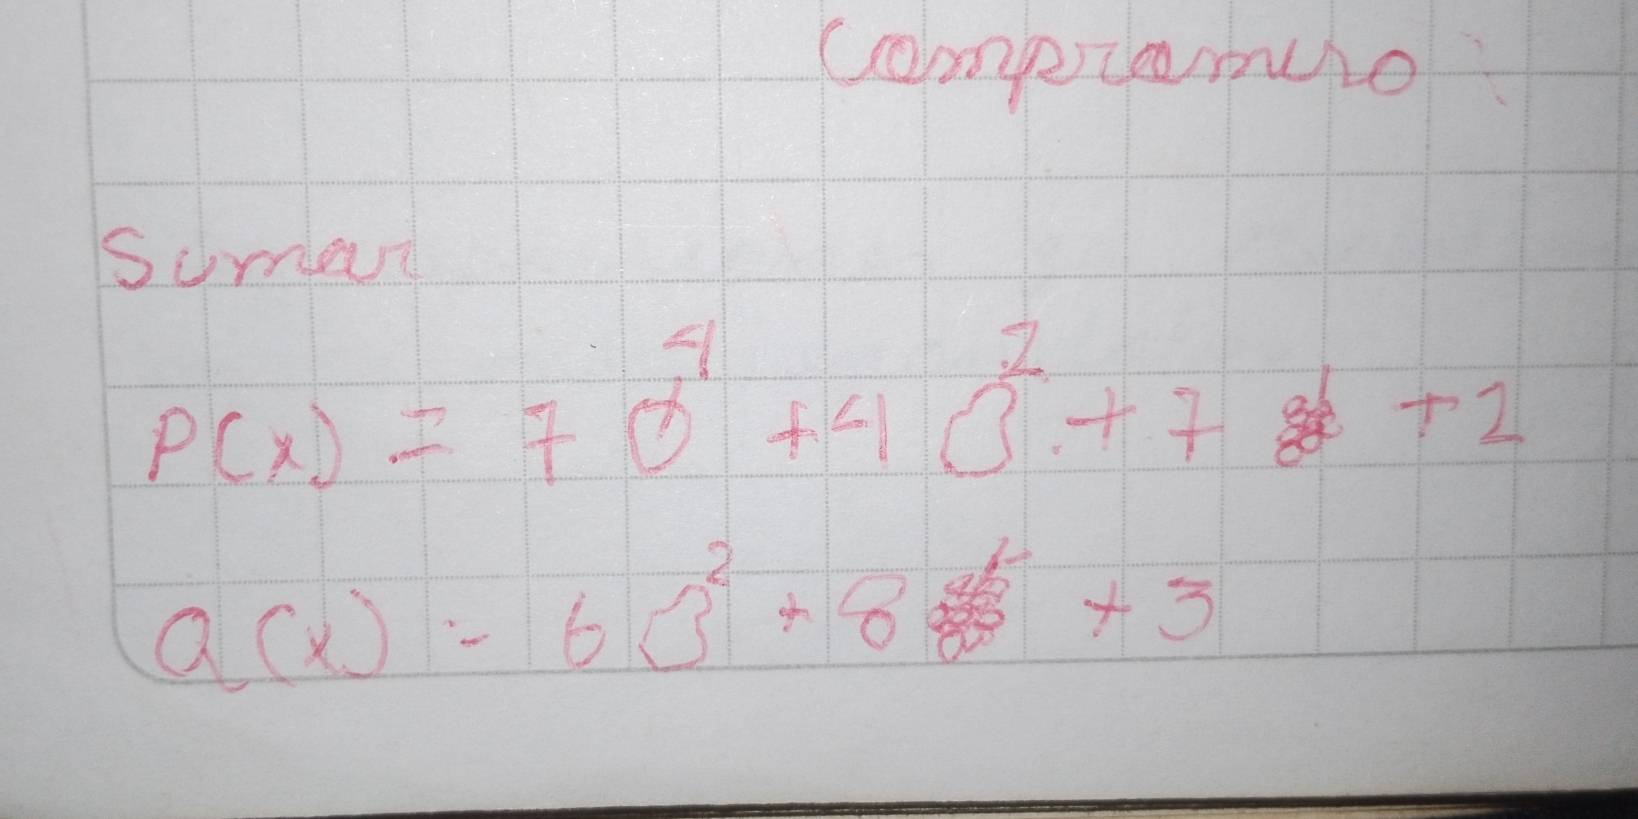 Compromiso:
Sumar
P(x) = 7 ⁴ + 4 ² + 7 + 2
Q(x) = 6 ² + 8 + 3